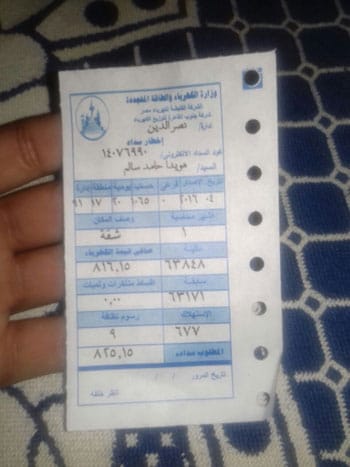 وزارة الكهرباء والطاقة المتجددة
الشركة القابضة لكهرباء مصر
شركة جنوب القاهرة لتوزيع الكهرباء
إدارة/ نصر الدين
إخطار سداد
كود السداد الالكترونى/ ١٤٠٧٦٩٩٠
السيد/ هويدا حامد سالم
تاريخ الاصدار فرعى حساب يومية منطقة إدارة
٠٤ ٢٠١٦ ٠ ١٠٦٥ ٢٠ ١٧ ٩١
وصف المكان
١ شقة
حالية صافى قيمة الكهرباء
٦٣٨٤٨ ٨١٦,١٥
سابقة
٦٣١٧١ ٠,٠٠
الاستهلاك رسوم نظافة
٦٧٧ ٩
المطلوب سداده ٨٢٥,١٥
تاريخ المرور / /
انظر خلفه